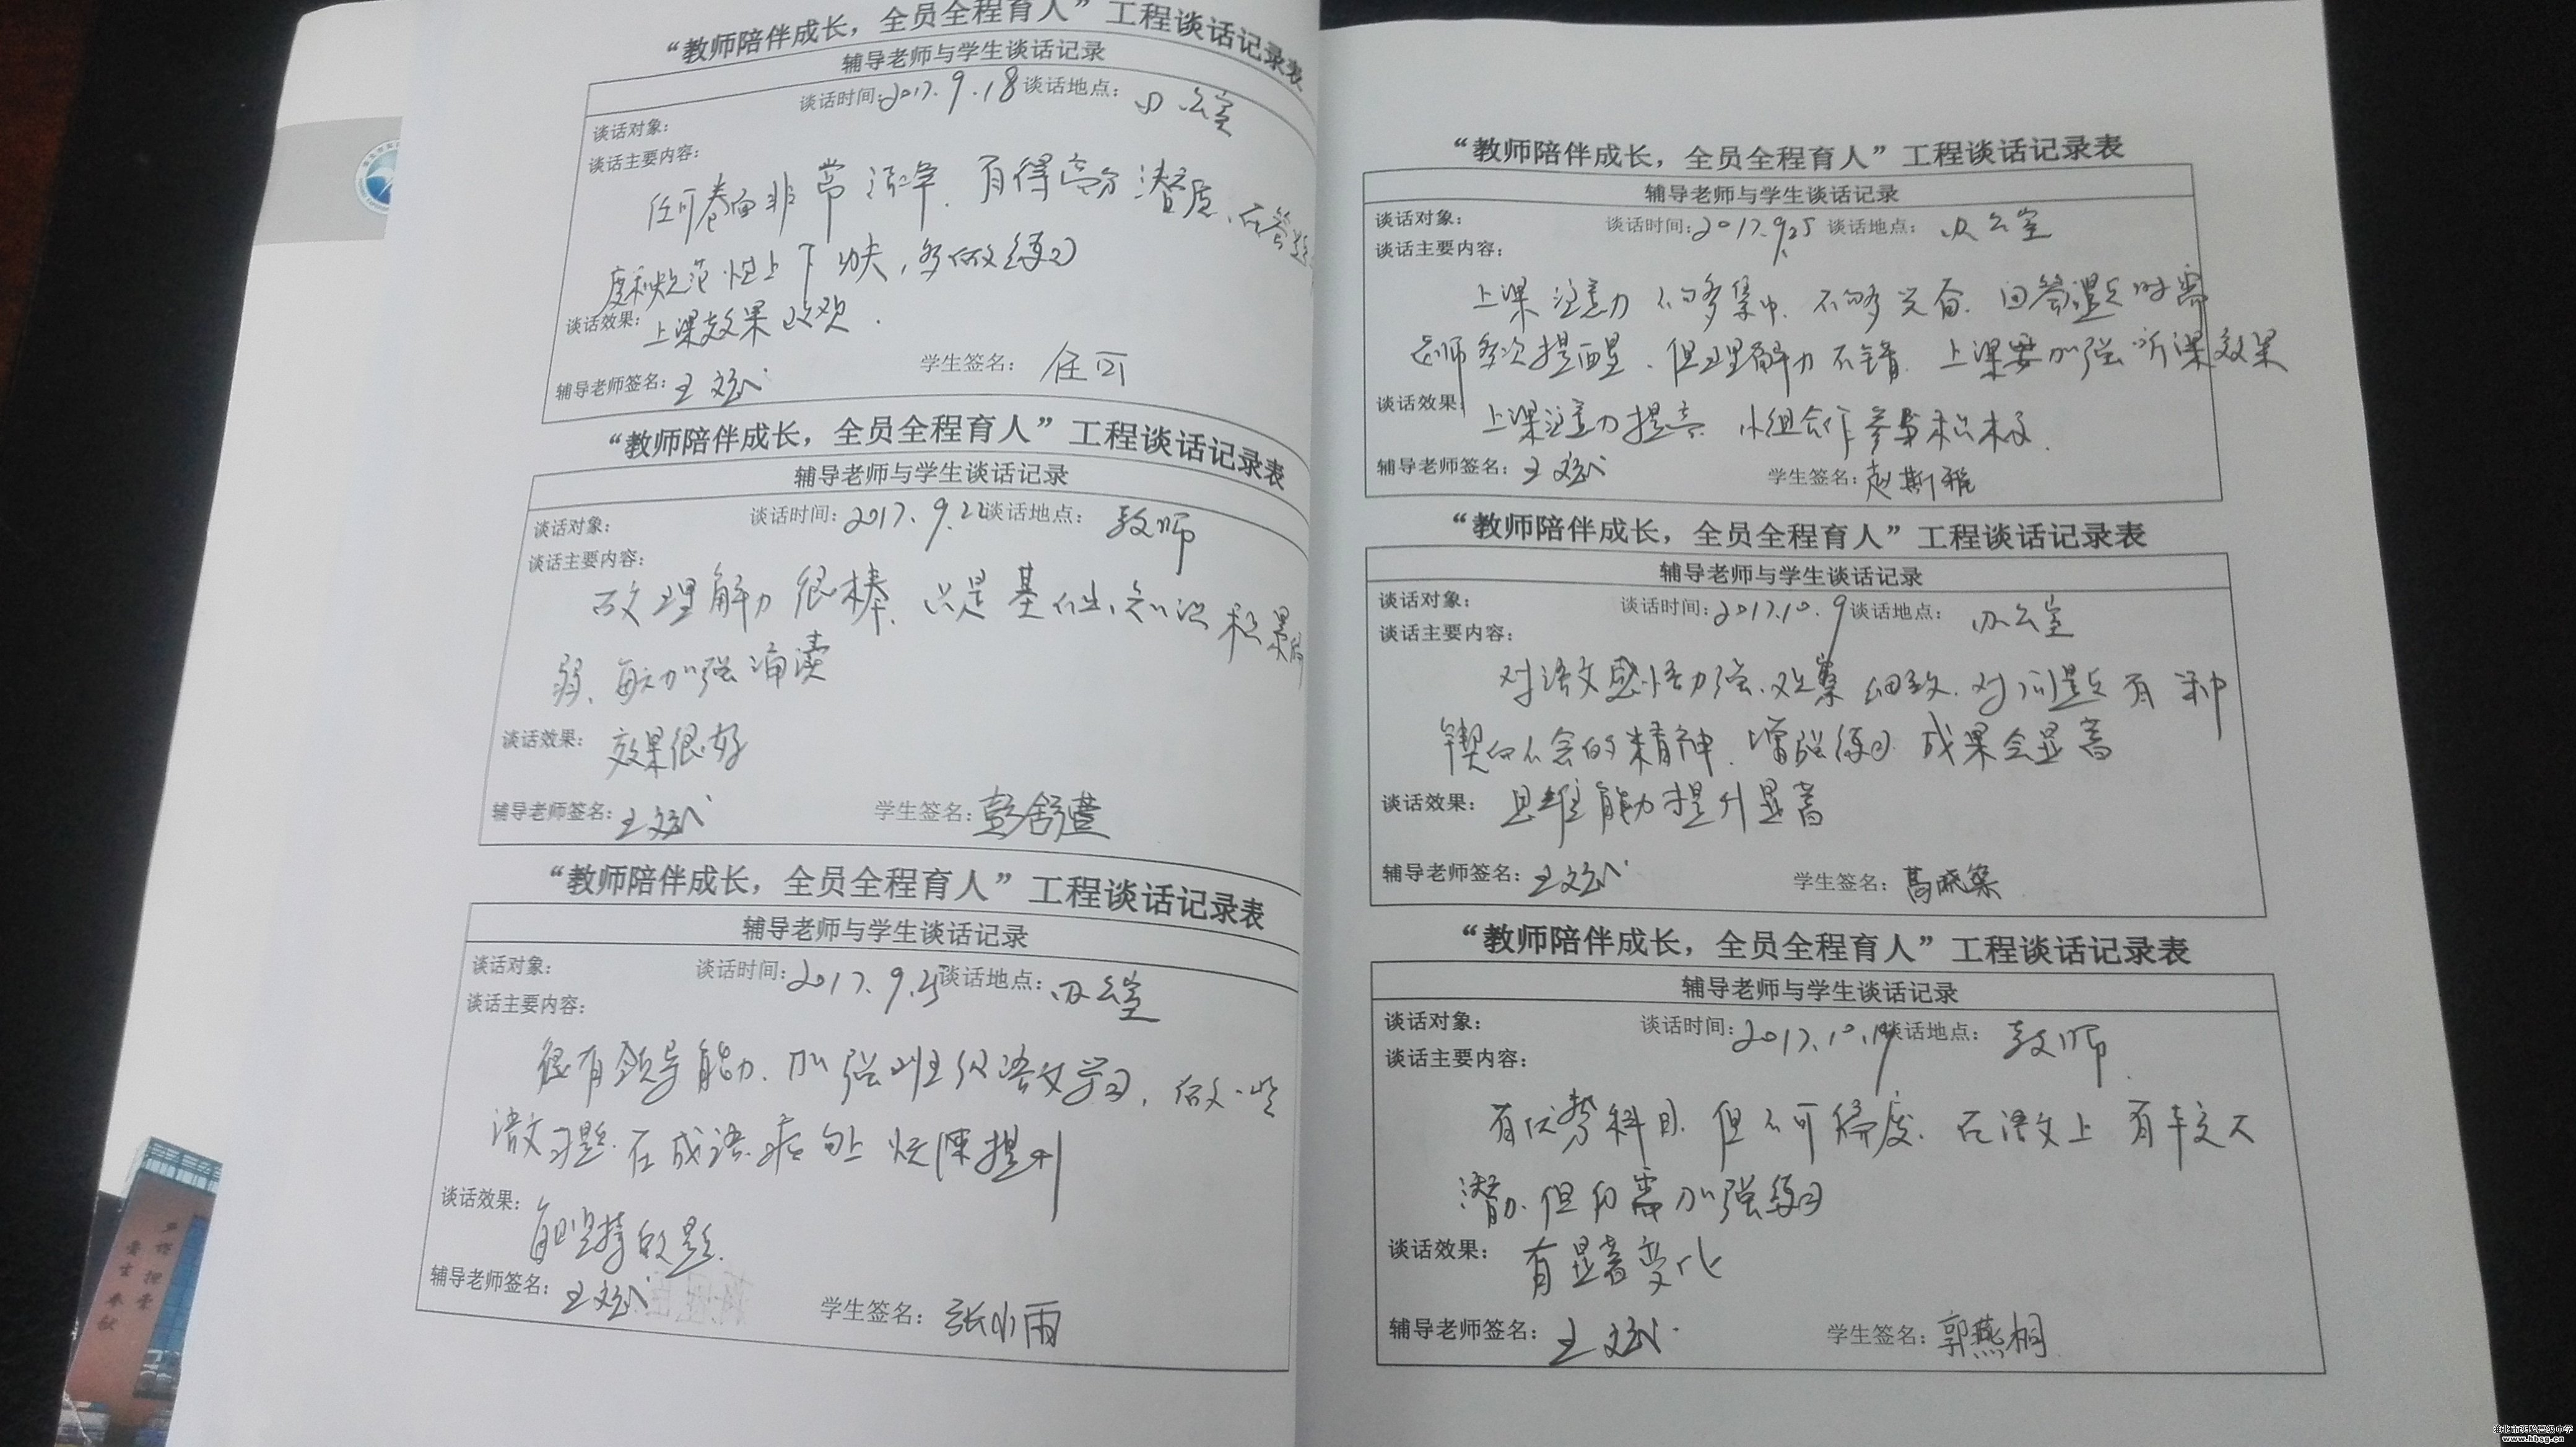 “教师陪伴成长，全员全程育人”工程谈话记录表
辅导老师与学生谈话记录
谈话时间:2017.9.18 谈话地点：办公室
谈话对象：
谈话主要内容：
任可卷面非常洁净.有得高分潜质、在答题
度和规范性上下功夫，多做练习
谈话效果：上课效果改观.
辅导老师签名：王文 学生签名：任可
“教师陪伴成长，全员全程育人”工程谈话记录表
辅导老师与学生谈话记录
谈话对象： 谈话时间：2017.9.22 谈话地点：教师
谈话主要内容：
理解力很棒、只是基础知识积累
弱、每天加强诵读
谈话效果：效果很好
辅导老师签名：王文 学生签名：彭舒萱
“教师陪伴成长，全员全程育人”工程谈话记录表
辅导老师与学生谈话记录
谈话对象： 谈话时间：2017.9.25 谈话地点：办公室
谈话主要内容：
很有领导能力、加强班级语文学习，做一些
语文习题.在成语.病句上 提升
谈话效果：能坚持做题.
辅导老师签名：王文 学生签名：张小雨
“教师陪伴成长，全员全程育人”工程谈话记录表
辅导老师与学生谈话记录
谈话对象： 谈话时间：2017.9.25 谈话地点：办公室
谈话主要内容：
上课注意力不够集中.不够兴奋.回答问题时需
老师多次提醒、但理解力不错.上课要加强听课效果
谈话效果：上课注意力提高.小组合作参与积极.
辅导老师签名：王文 学生签名：赵斯雅
“教师陪伴成长，全员全程育人”工程谈话记录表
辅导老师与学生谈话记录
谈话对象： 谈话时间：2017.10.9 谈话地点：办公室
谈话主要内容：
对语文感悟力强、观察细致.对问题有种
锲而不舍的精神.增强练习.成果会显著
谈话效果：思维能力提升显著
辅导老师签名：王文 学生签名：高晓
“教师陪伴成长，全员全程育人”工程谈话记录表
辅导老师与学生谈话记录
谈话对象： 谈话时间：2017.10.19 谈话地点：教师
谈话主要内容：
有优势科目.但不可偏废.在语文上有较大
潜力.但仍需加强练习
谈话效果：有显著变化
辅导老师签名：王文 学生签名：郭燕桐
淮北市实验高级中学
www.hbsg.cn